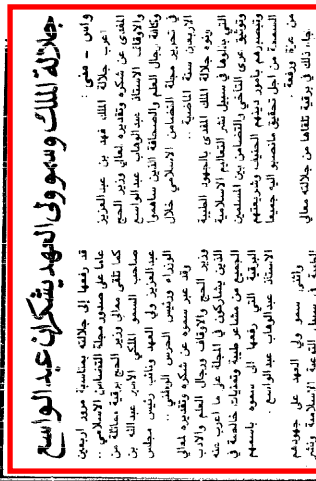 جلالة الملك وسمو ولي العهد يشكران عبد الواسع
واس - منى :
اعرب جلالة الملك فهد بن عبد العزيز
المفدى عن شكره وتقديره لمعالي وزير الحج
والاوقاف الاستاذ عبد الوهاب عبد الواسع
وكافة رجال العلم والصحافة الذين ساهموا
في تحرير مجلة التضامن الاسلامي خلال
الاربعين سنة الماضية ..
ونوه جلالة الملك المفدى بالجهود الطيبة
التي بذلوها في سبيل نشر التعاليم الاسلامية
وتوثيق عرى التآخي والتضامن بين المسلمين
وتبصيرهم بأمور دينهم الحنيف وشريعتهم
السمحة من اجل تحقيق ماتصبو اليه جميعها
من عزة ورفعة .
جاء ذلك في برقية تلقاها من جلالته معالي
قد رفعها إلى جلالته بمناسبة مرور اربعين
عاما على صدور مجلة التضامن الاسلامي ..
كما تلقى معالي وزير الحج برقية مماثلة من
صاحب السمو الملكي الامير عبد الله بن
عبد العزيز ولي العهد ونائب رئيس مجلس
الوزراء ورئيس الحرس الوطني ..
وقد عبر سموه عن شكره وتقديره لمعالي
وزير الحج والاوقاف ورجال العلم والادب
الذين يشاركون في المجلة على ما اعرب عنه
الجميع من مشاعر طيبة وتمنيات خالصة في
البرقية التي رفعها إلى سموه باسمهم
الاستاذ عبد الوهاب عبد الواسع .
واثنى سمو ولي العهد على جهودهم
الطيبة في سبيل التوعية الاسلامية ونشر